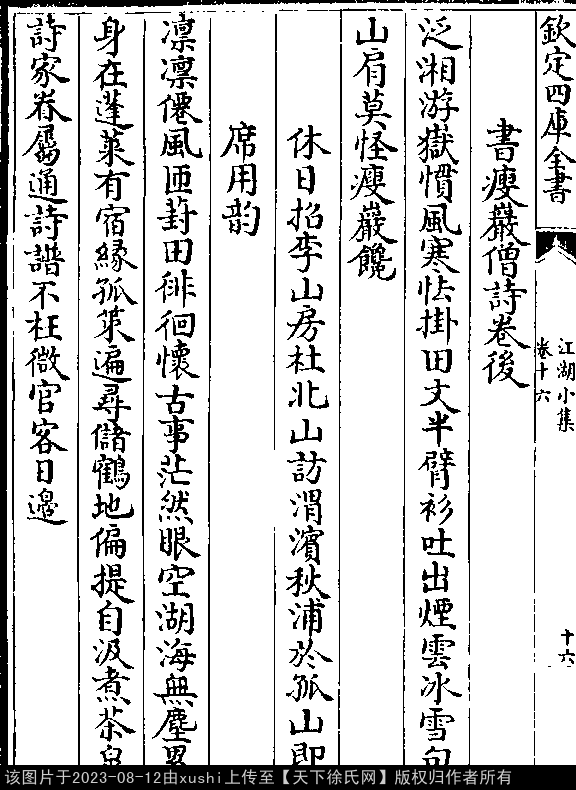 欽定四庫全書
江湖小集
卷十六
十六
書瘦巖僧詩卷後
泛湘游嶽慣風寒怯掛田文半臂衫吐出煙雲冰雪句
山肩莫怪瘦巖饞
休日招李山房杜北山訪渭濱秋浦於孤山即
席用韵
凛凛僊風匝葑田徘徊懷古事茫然眼空湖海無塵
身在蓬萊有宿緣孤策遍尋儲鶴地偏提自汲煮茶泉
詩家眷屬通詩譜不枉微官客日邊
该图片于2023-08-12由xushi上传至【天下徐氏网】版权归作者所有